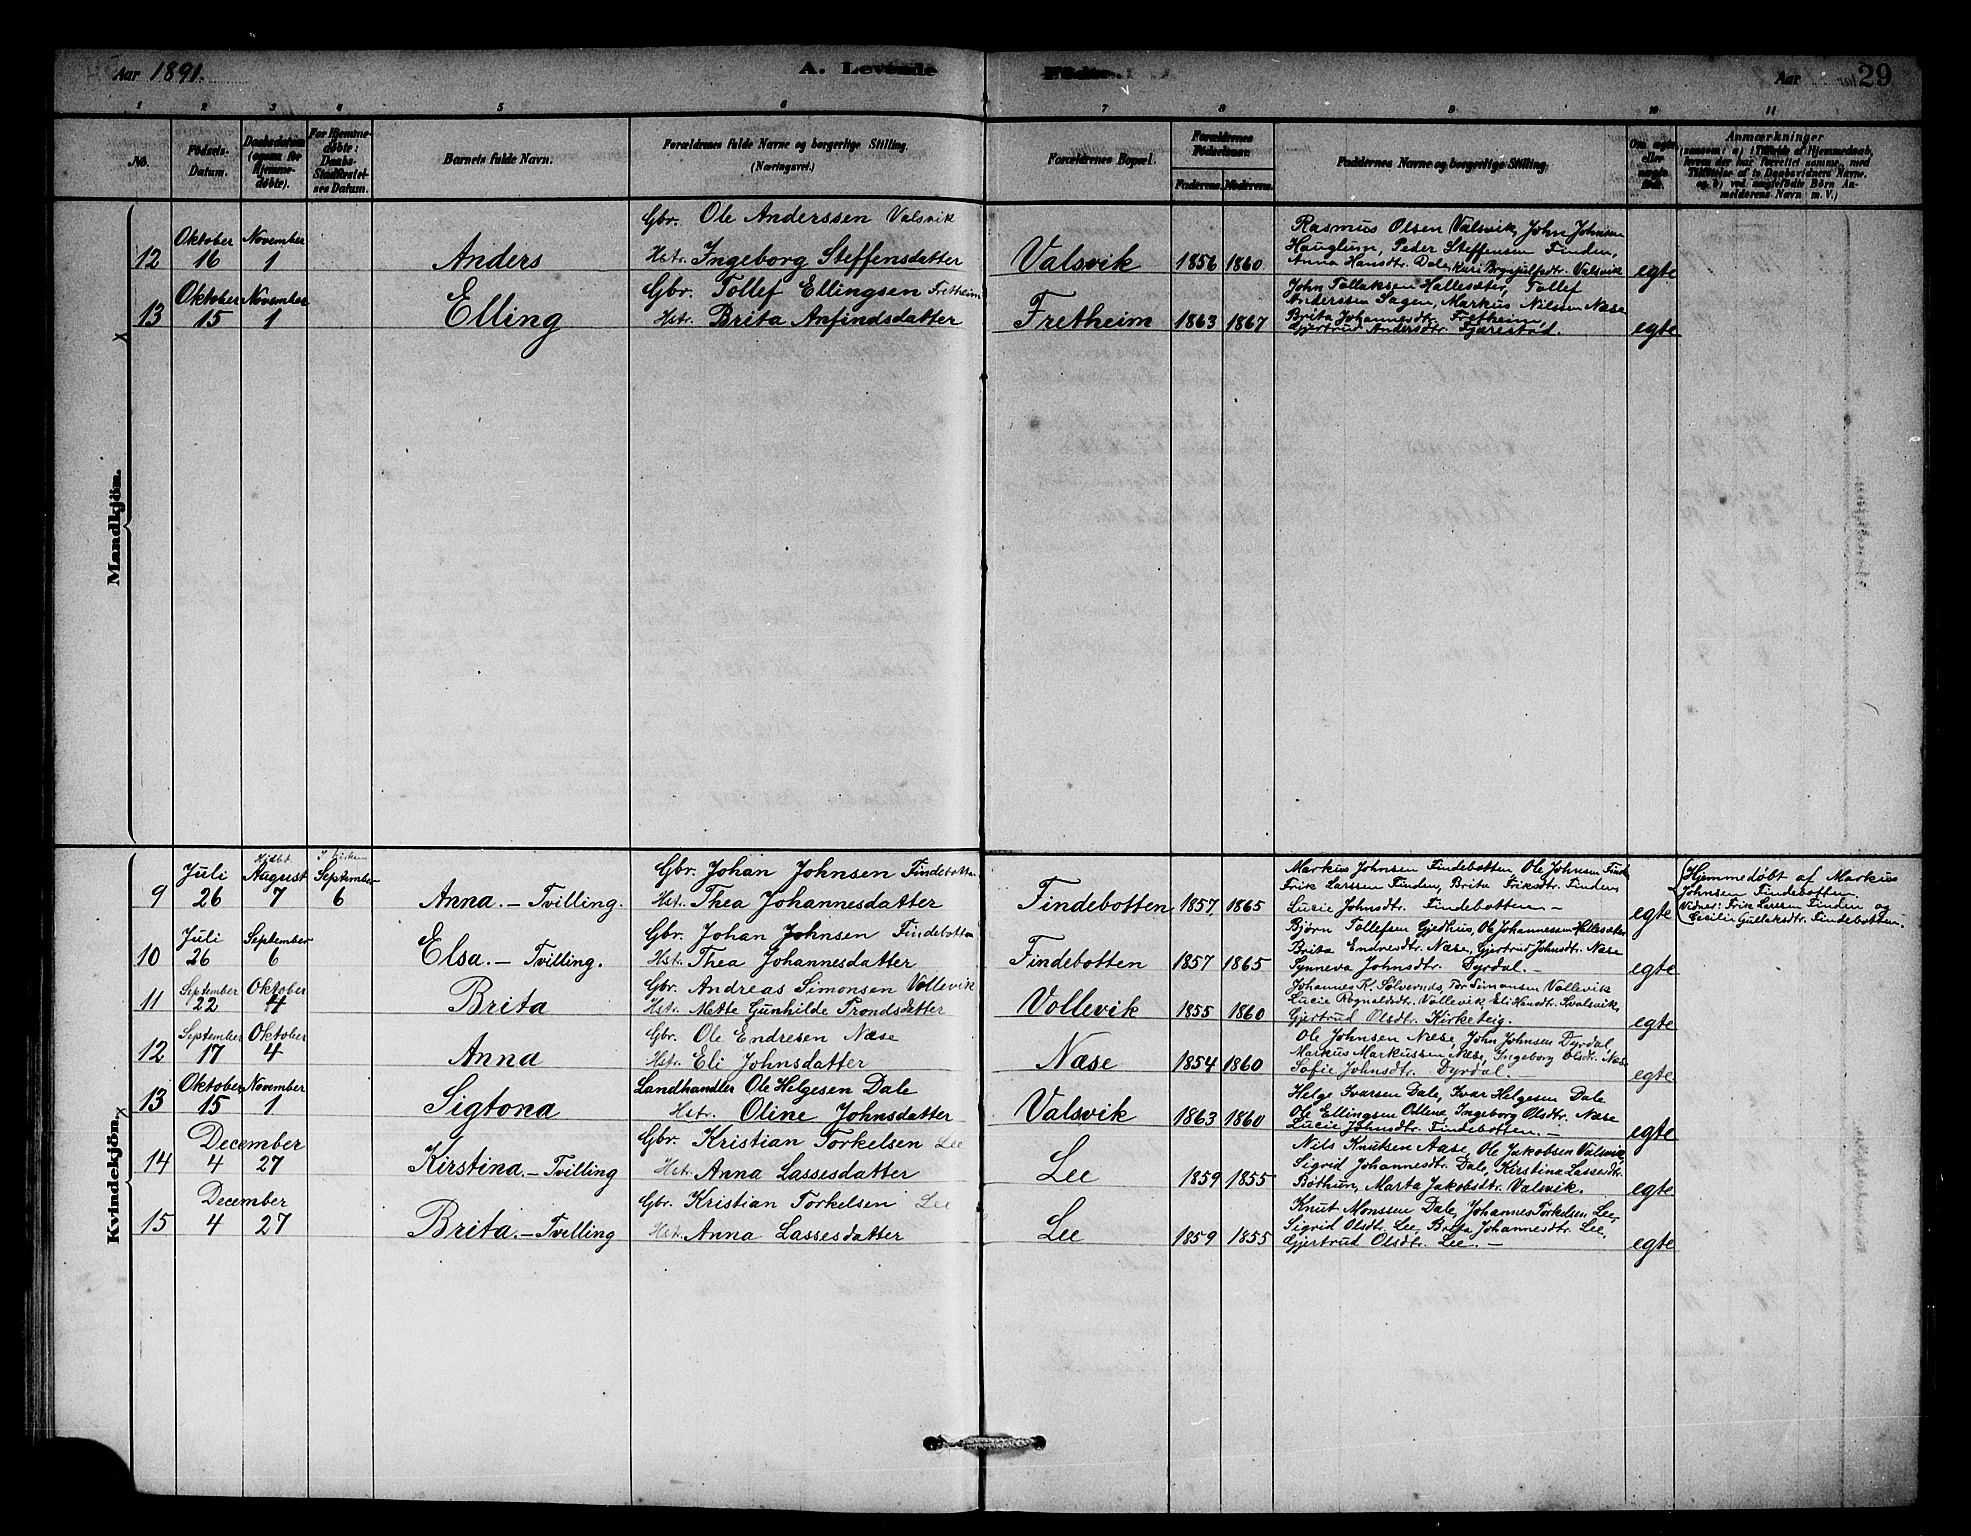 Aar 1891.
A. Levende Fødte.
Aar
29
1 2 3 4 5 6 7 8 9 10 11
No.
Fødsels-Datum.
Daabsdatum (ogsaa for Hjemmedøbte).
For Hjemmedøbte: Daabs-Stadfæstelses Datum.
Barnets fulde Navn.
Forældrenes fulde Navne og borgerlige Stilling. (Næringsvei.)
Forældrenes Bopæl.
Forældrenes Fødselsaar.
Faderens. Moderens.
Faddernes Navne og borgerlige Stilling.
Om ægte eller uægte født.
Anmærkninger
(saasom: a) i Tilfælde af Hjemmedaab,
hvem der har forrettet samme, med
Tilføielse af to Daabsvidners Navne.
og b) ved uægtefødte Børn An-
melderens Navn m. V.)
Mandkjön.
12 Oktober 16 November 1 Anders
Gbr. Ole Anderssen Valsvik
Hst. Ingeborg Steffensdatter
Valsvik 1856 1860
Rasmus Olsen Valsvik, John Johnsen
Hauglum, Peder Steffensen Finden,
Anna Hansdtr. Dale, Kari Brynjulfsdtr. Valsvik
egte
13 Oktober 15 November 1 Elling
Gbr. Tollef Ellingsen Fretheim
Hst. Brita Anfindsdatter
Fretheim 1863 1867
John Tollaksen Hallesæter, Tollef
Anderssen Sagen, Markus Nilsen Næse
Brita Johannesdtr. Fretheim
Gjertrud Andersdtr. Fjærestød.
egte
Kvindekjön.
9 Juli 26 Hjdbt. August 7 I Kirken September 6 Anna. – Tvilling.
Gbr. Johan Johnsen Findebotten
Hst. Thea Johannesdatter
Findebotten 1857 1865
Markus Johnsen Findebotten, Ole Johnsen Find
Erik Larssen Finden, Brita Eriksdtr. Finden
Lucie Johnsdtr. Findebotten –
egte
(Hjemmedøbt af Markus
Johnsen Findebotten.
Vidner: Erik Larssen Finden og
Cecilie Gulleksdtr. Findebotten.
10 Juli 26 September 6 Elsa. – Tvilling.
Gbr. Johan Johnsen Findebotten
Hst. Thea Johannesdatter
Findebotten 1857 1865
Bjørn Tollefsen Gjedhus, Ole Johannessen Hallesæter
Brita Endresdtr. Næse, Gjertrud Johnsdtr. Næse
Synneva Johnsdtr. Dyrdal. –
egte
11 September 22 Oktober 4 Brita
Gbr. Andreas Simonsen Vollevik
Hst. Mette Gunhilde Trondsdatter
Vollevik 1855 1860
Johannes R. Sølvernds, Tor Simonsen Vollevik
Lucie Rognaldsdtr. Vollevik, Eli Hansdtr. Svalsvik,
Gjertrud Olsdtr. Kirketeig.
egte
12 September 17 Oktober 4 Anna
Gbr. Ole Endresen Næse
Hst. Eli Johnsdatter
Næse 1854 1860
Ole Johnsen Næse, John Johnsen Dyrdal,
Markus Markussen Næse, Ingeborg Olsdtr. Næse
Sofie Johnsdtr. Dyrdal.
egte
13 Oktober 15 November 1 Sigtona
Landhandler Ole Helgesen Dale
Hstr. Oline Johnsdatter
Valsvik 1863 1860
Helge Ivarsen Dale, Ivar Helgesen Dale
Ole Ellingsen Ottene, Ingeborg Olsdtr. Næse
Lucie Johnsdtr. Findebotten. –
egte
14 December 4 27 Kirstina. – Tvilling
Gbr. Kristian Torkelsen Lee
Hst. Anna Lassesdatter
Lee 1859 1855
Nils Knutsen Aase, Ole Jakobsen Valsvik
Sigrid Johannesdtr. Dale, Kirstina Lassesdtr.
Bøthun, Marta Jakobsdtr. Valsvik.
egte
15 December 4 27 Brita. – Tvilling
Gbr. Kristian Torkelsen Lee
Hst. Anna Lassesdatter
Lee 1859 1855
Knut Monssen Dale, Johannes Torkelsen Lee,
Sigrid Olsdtr. Lee, Brita Johannesdtr. Lee,
Gjertrud Olsdtr. Lee. –
egte